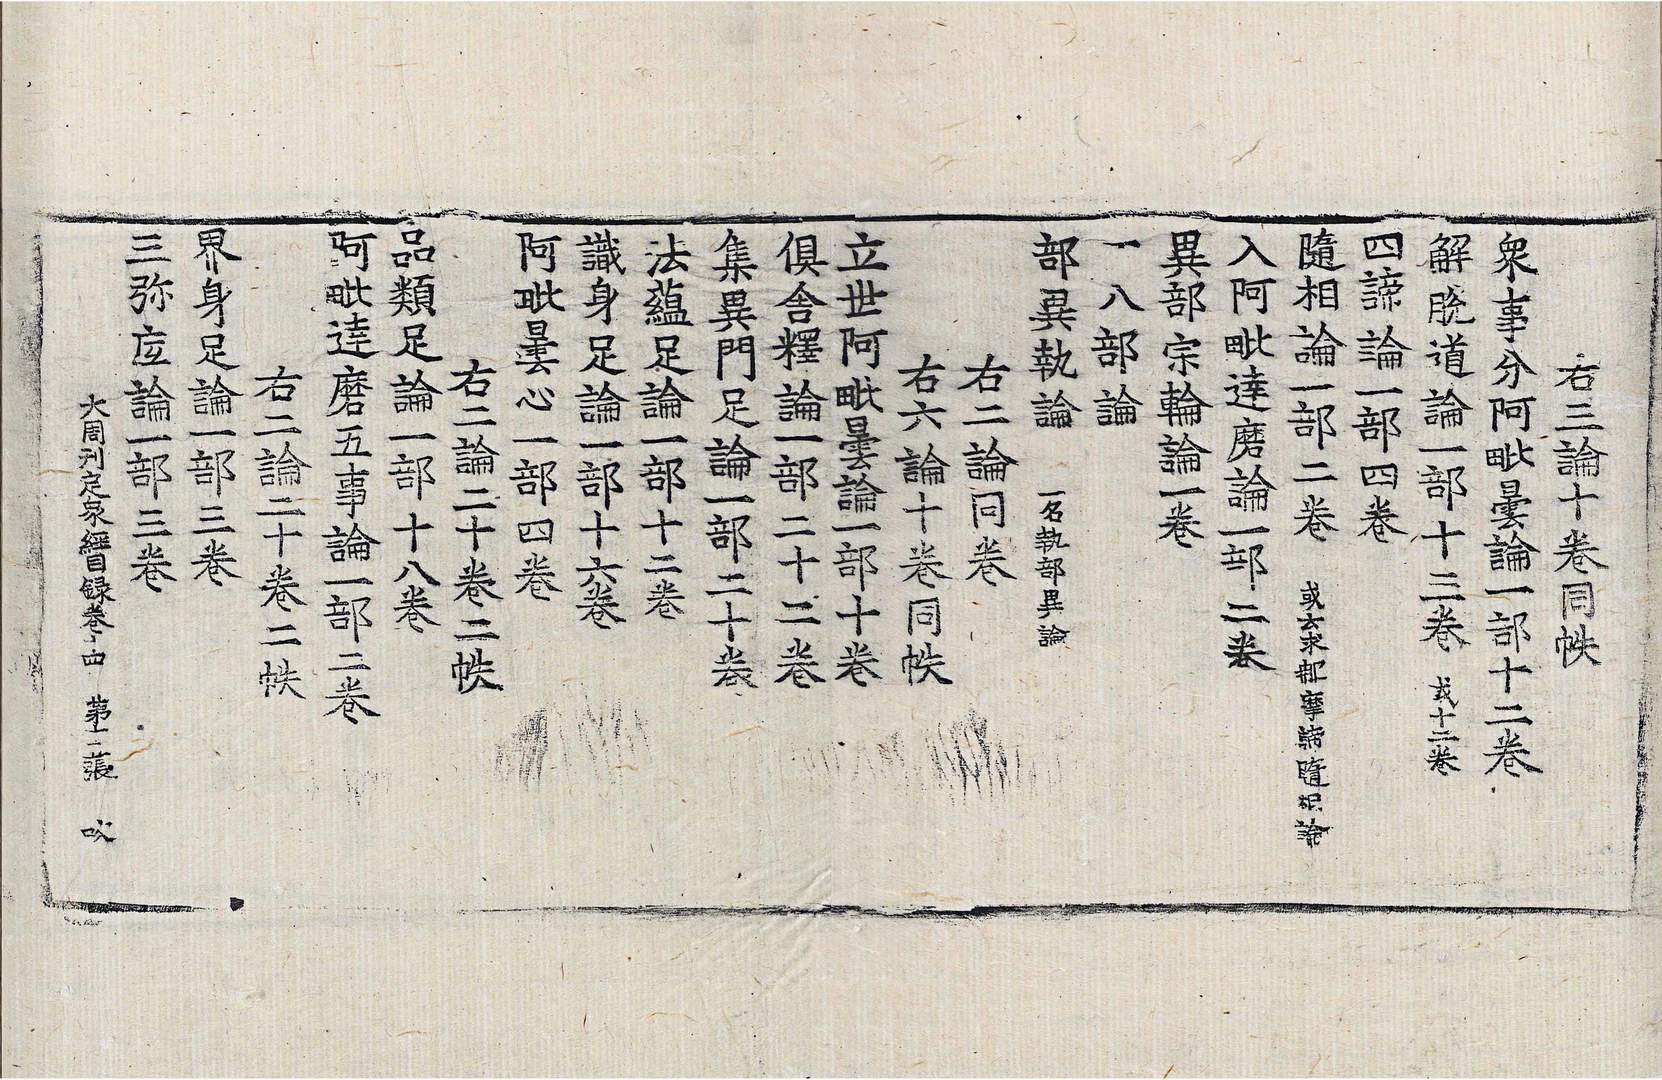 右三論十卷同帙
衆事分阿毗曇論一部十二卷
解脫道論一部十三卷 或十二卷
四諦論一部四卷
隨相論一部二卷 或云求那摩諦隨相論
入阿毗達磨論一部二卷
異部宗輪論一卷
十八部論
部異執論 一名執部異論
右二論同卷
右六論十卷同帙
立世阿毗曇論一部十卷
俱舍釋論一部二十二卷
集異門足論一部二十卷
法蘊足論一部十二卷
識身足論一部十六卷
阿毗曇心一部四卷
右二論二十卷二帙
品類足論一部十八卷
阿毗達磨五事論一部二卷
右二論二十卷二帙
界身足論一部三卷
三弥底論一部三卷
大周刊定衆經目録卷十四 第十二張